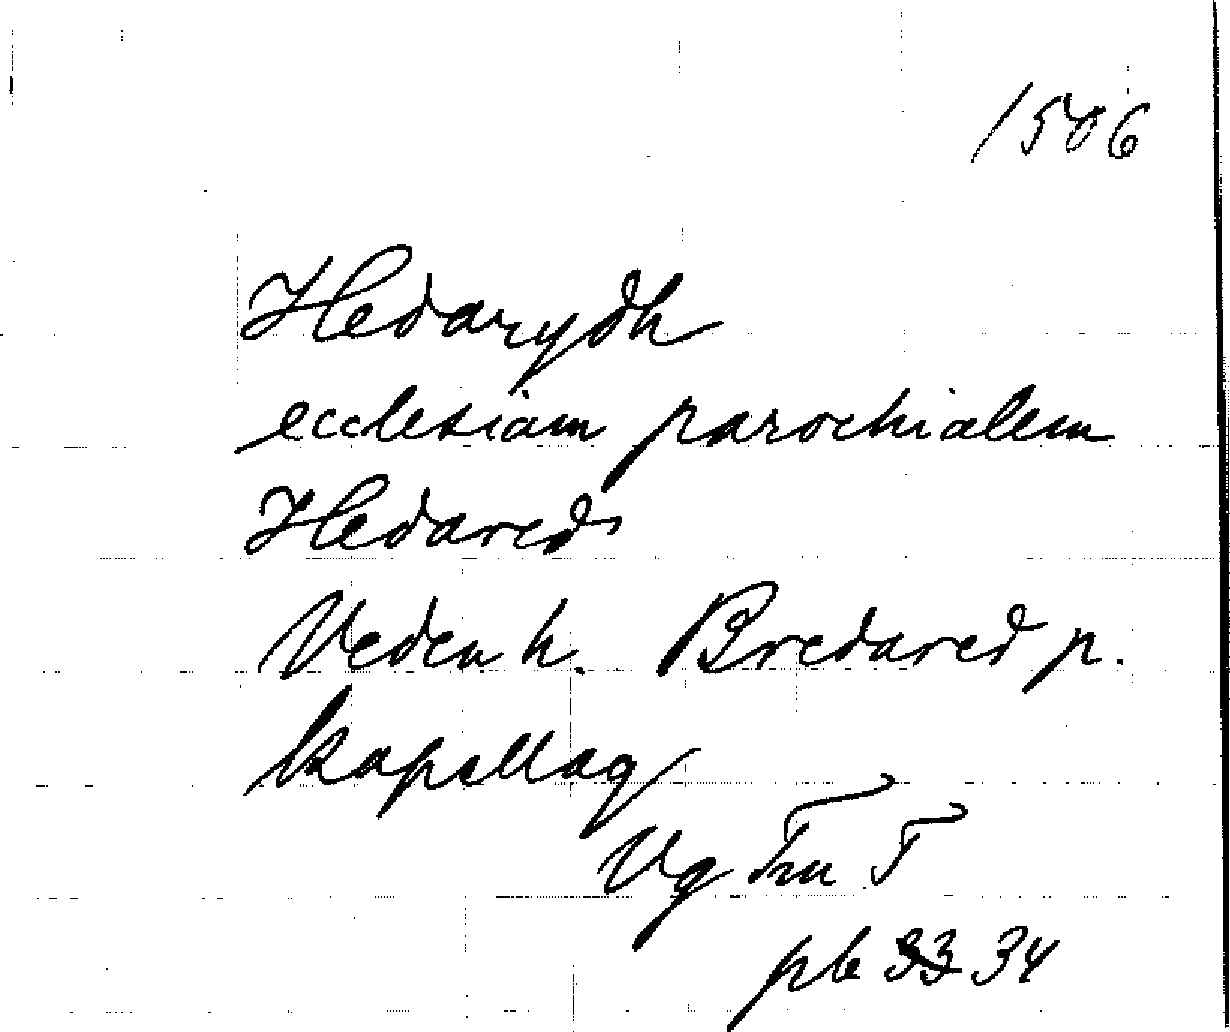 1506
Hedarydh
ecclesiam parochialem
Hedareds
Veden h. Bredared p.
kapellag
Vg Fru F
pb 33 34